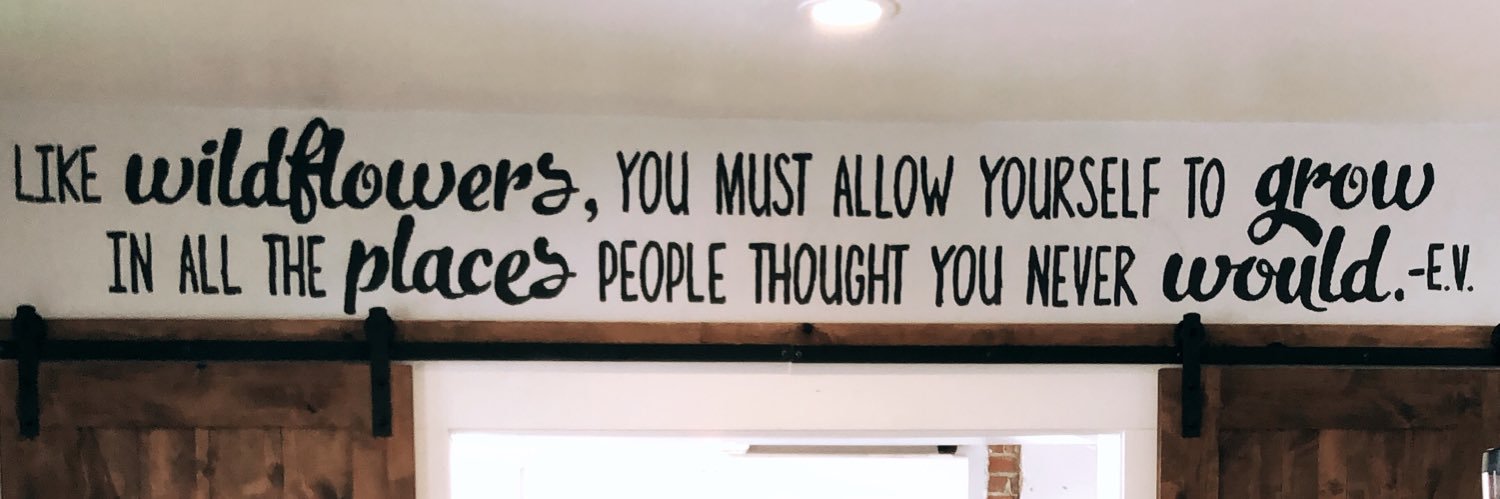 LIKE wildflowers, YOU MUST ALLOW YOURSELF TO grow
IN ALL THE places PEOPLE THOUGHT YOU NEVER would. -E.V.